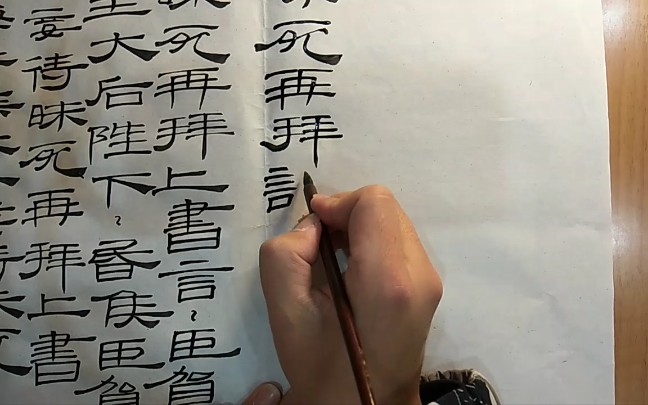 妾待昧死再拜上書
大后陛下昏侯臣賀
昧死再拜上書言臣賀
死再拜言